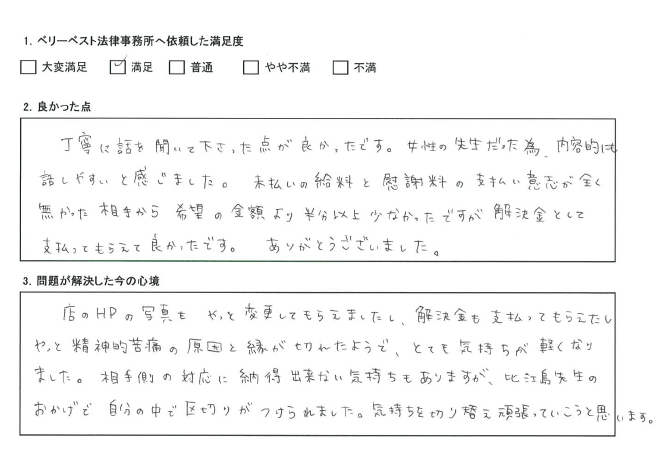 1. ベリーベスト法律事務所へ依頼した満足度
大変満足 満足 普通 やや不満 不満
2. 良かった点
丁寧に話を聞いて下さった点が良かったです。女性の先生だった為、内容的にも
話しやすいと感じました。未払いの給料と慰謝料の支払い意志が全く
無かった相手から希望の金額より半分以上少なかったですが解決金として
支払ってもらえて良かったです。ありがとうございました。
3. 問題が解決した今の心境
店のHPの写真もやっと変更してもらえましたし、解決金も支払ってもらえたし
やっと精神的苦痛の原因と縁が切れたようで、とても気持ちが軽くなり
ました。相手側の対応に納得出来ない気持ちもありますが、比江島先生の
おかげで自分の中で区切りがつけられました。気持ちを切り替え頑張っていこうと思います。